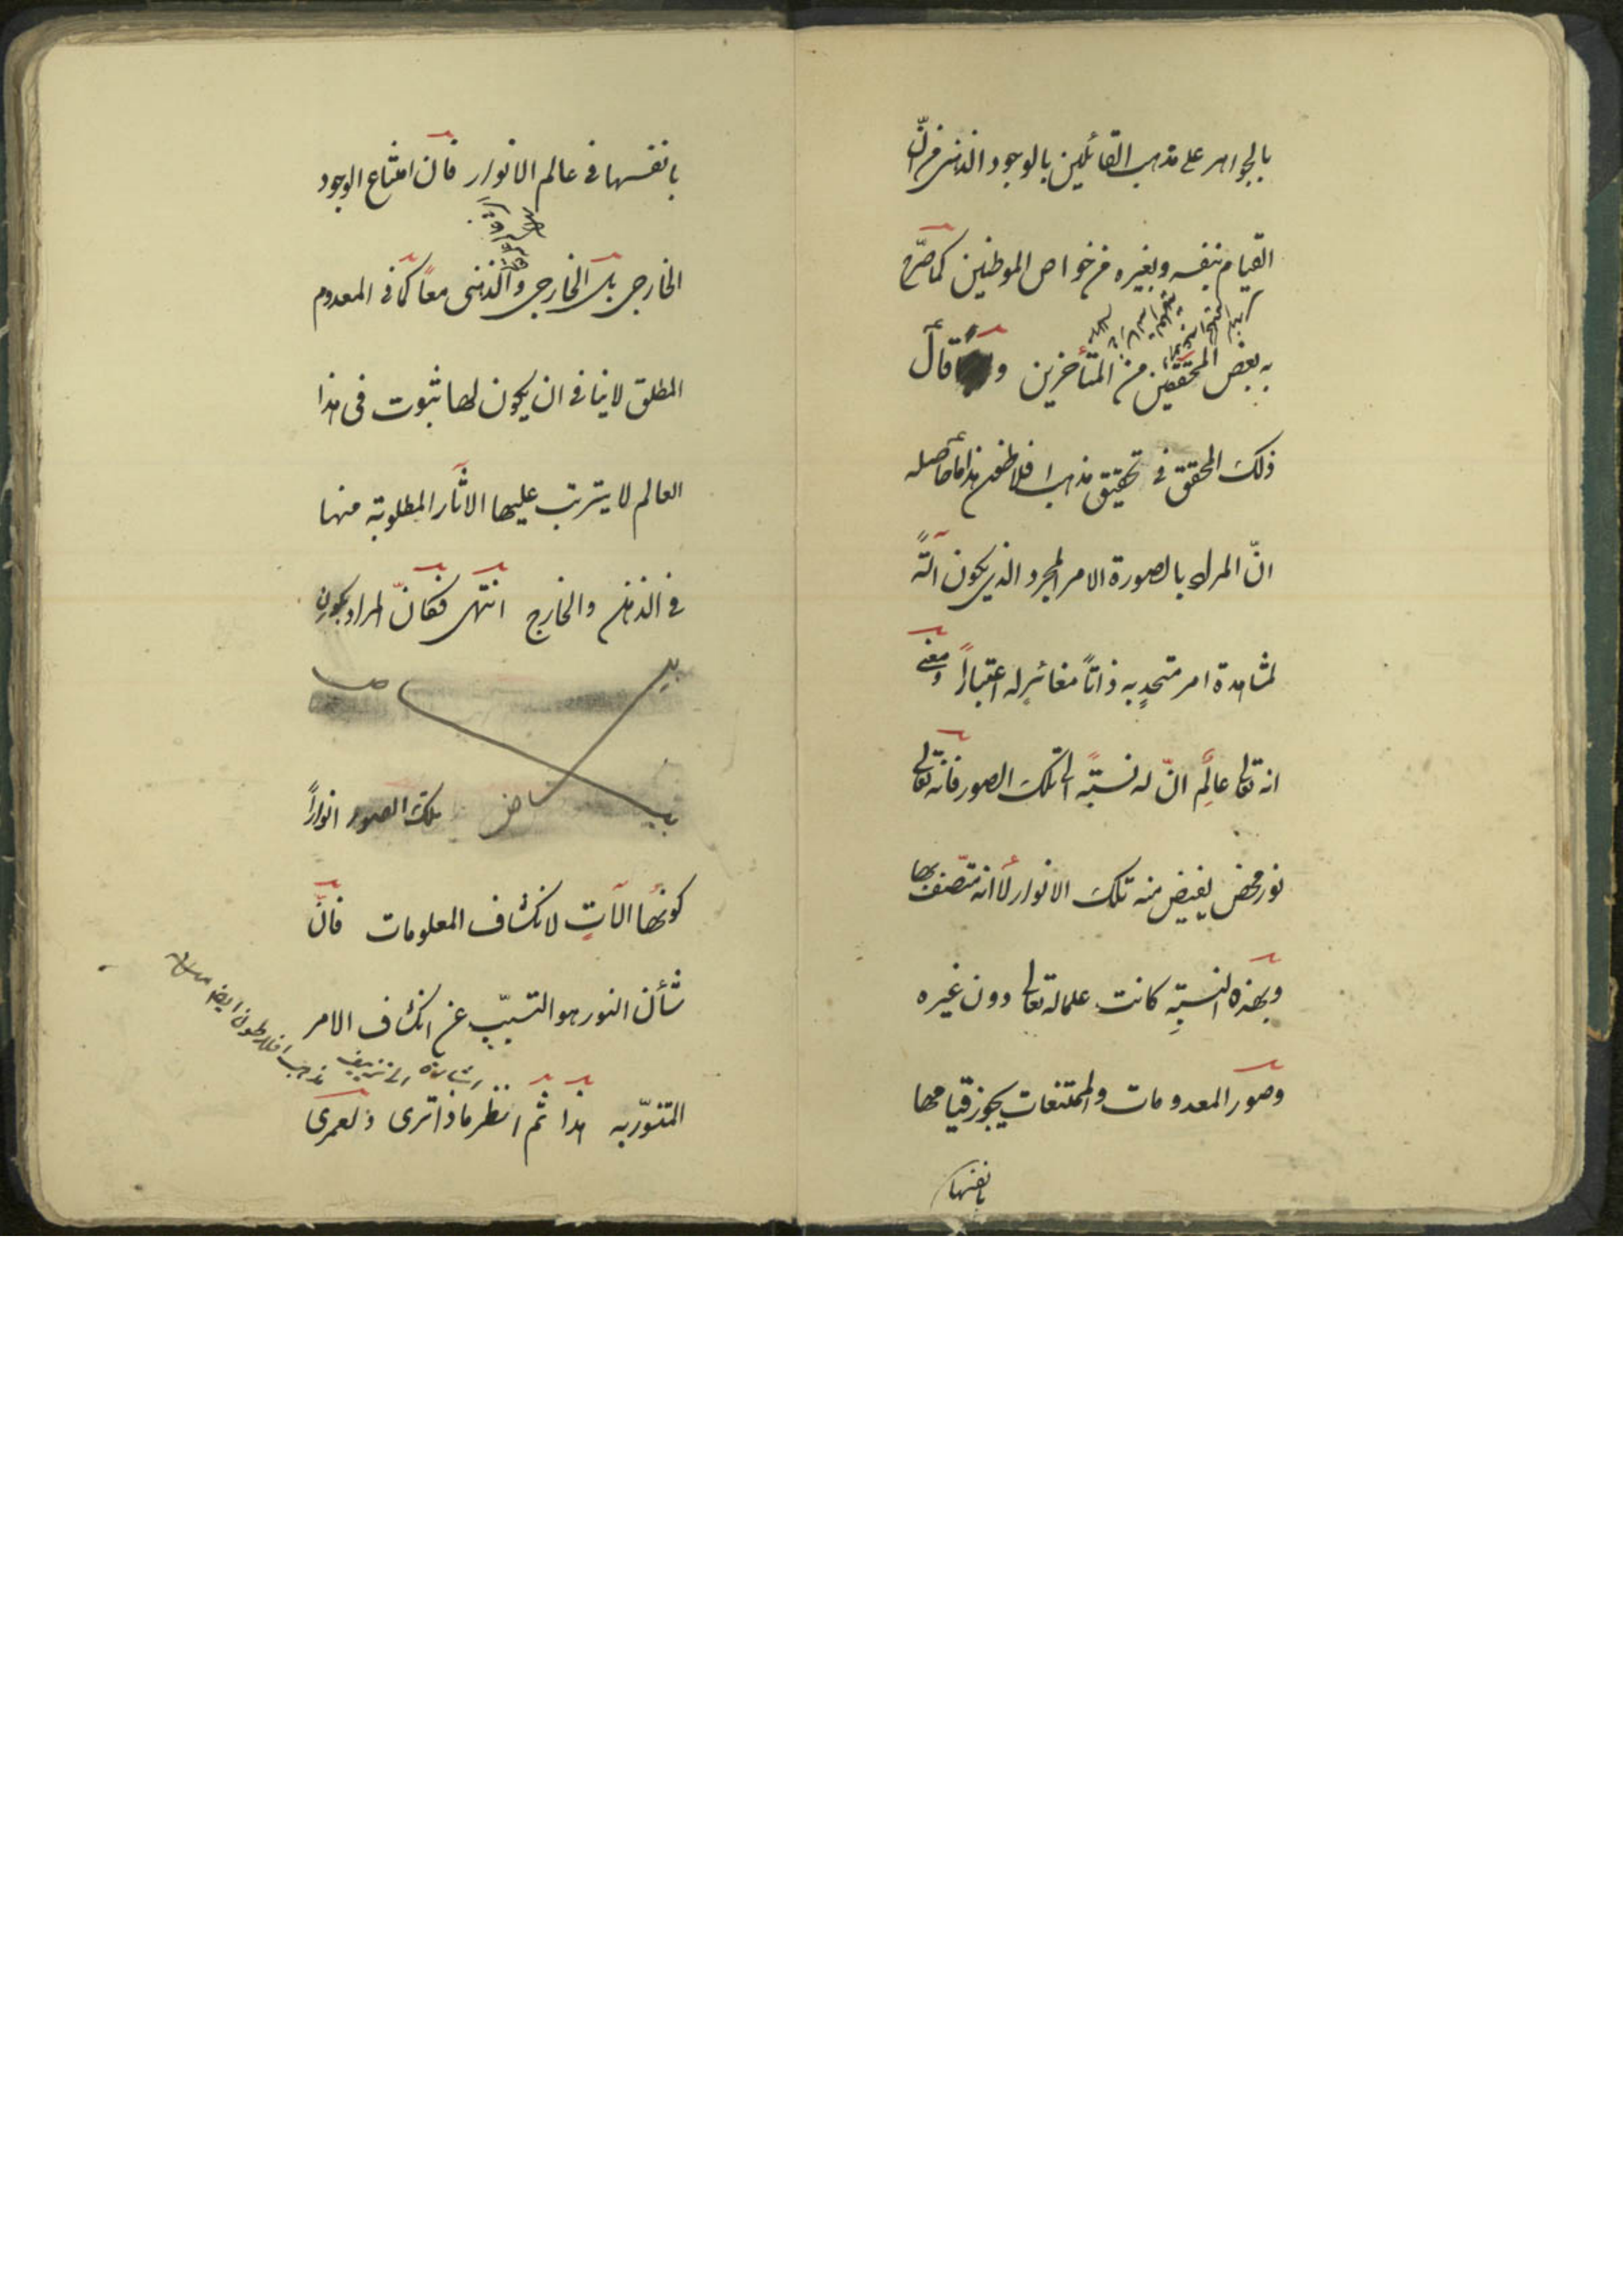 بالجواهر على مذهب القائلين بالوجود الذهنى من انّ
القيام بنفسه وبغيره من خواص الموطنين كما صرّح
به بعض المحققين من المتأخرين و قال
ذلك المحقق فى تحقيق مذهب افلاطون هذا ما حاصله
انّ المراد بالصورة الامر المجرد الذى يكون آلةً
لمشاهدة امر متحدٍ به ذاتاً مغائرٍ له اعتباراً ومعنى
انه تعالى عالِم انّ له نسبةً الى تلك الصور فانه تعالى
نور محض يفيض منه تلك الانوار لا انه متّصف بها
وبهذه النسبةِ كانت علما له تعالى دون غيره
وصور المعدومات والممتنعات يجوز قيامها
بانفسها
بانفسها فى عالم الانوار فان امتناع الوجود
الخارجى بل الخارجى والذهنى معاً كما فى المعدوم
المطلق لا ينافى ان يكون لها ثبوت فى هذا
العالم لا يترتب عليها الاثار المطلوبة منها
فى الذهن والخارج انتهى فكانّ المراد بكون
تلك الصور انواراً
كونُها آلاتٍ لانكشاف المعلومات فانّ
شأن النور هو التسبّب عن انكشاف الامر
اشارة الى تزييف مذهب افلاطون ايضا
المتنوّر به هذا ثم انظر ماذا ترى ولعمرى